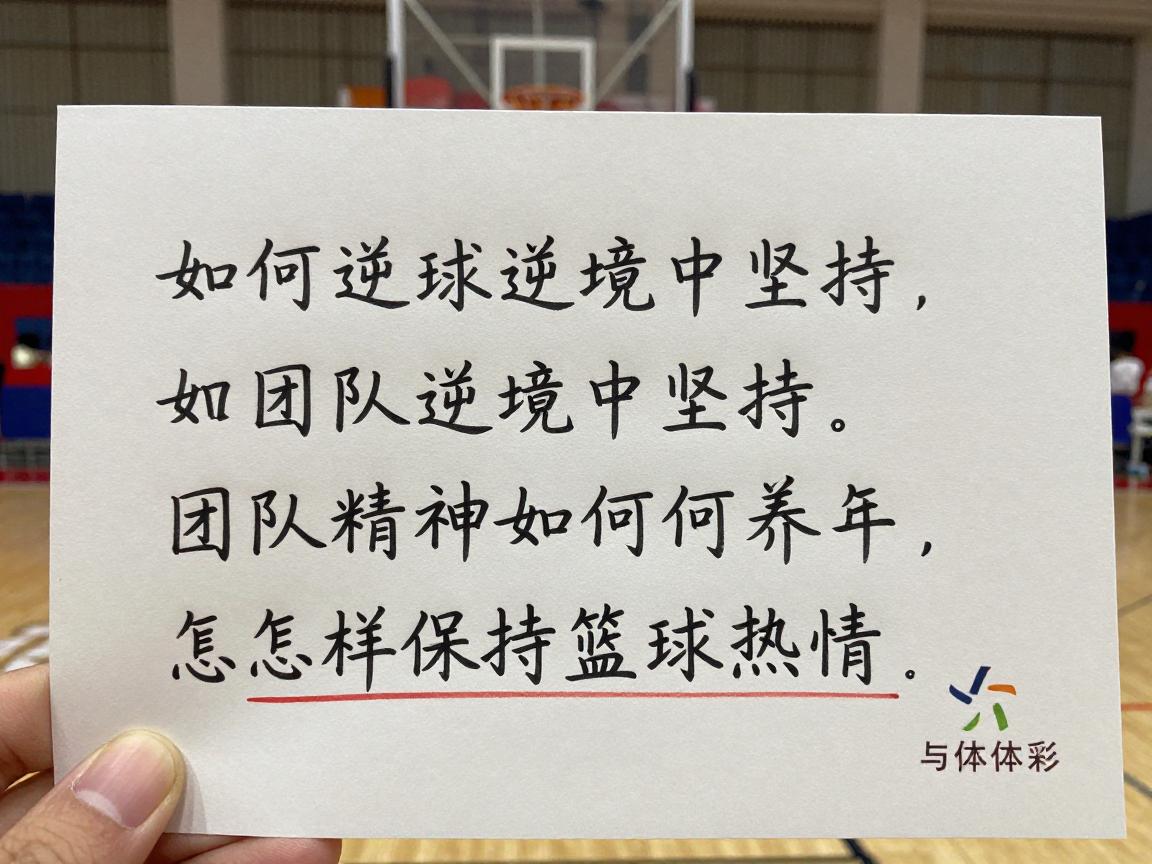 如何逆球逆境中坚持，
如团队逆境中坚持。
团队精神如何何养年，
怎怎样保持篮球热情。
与体体彩